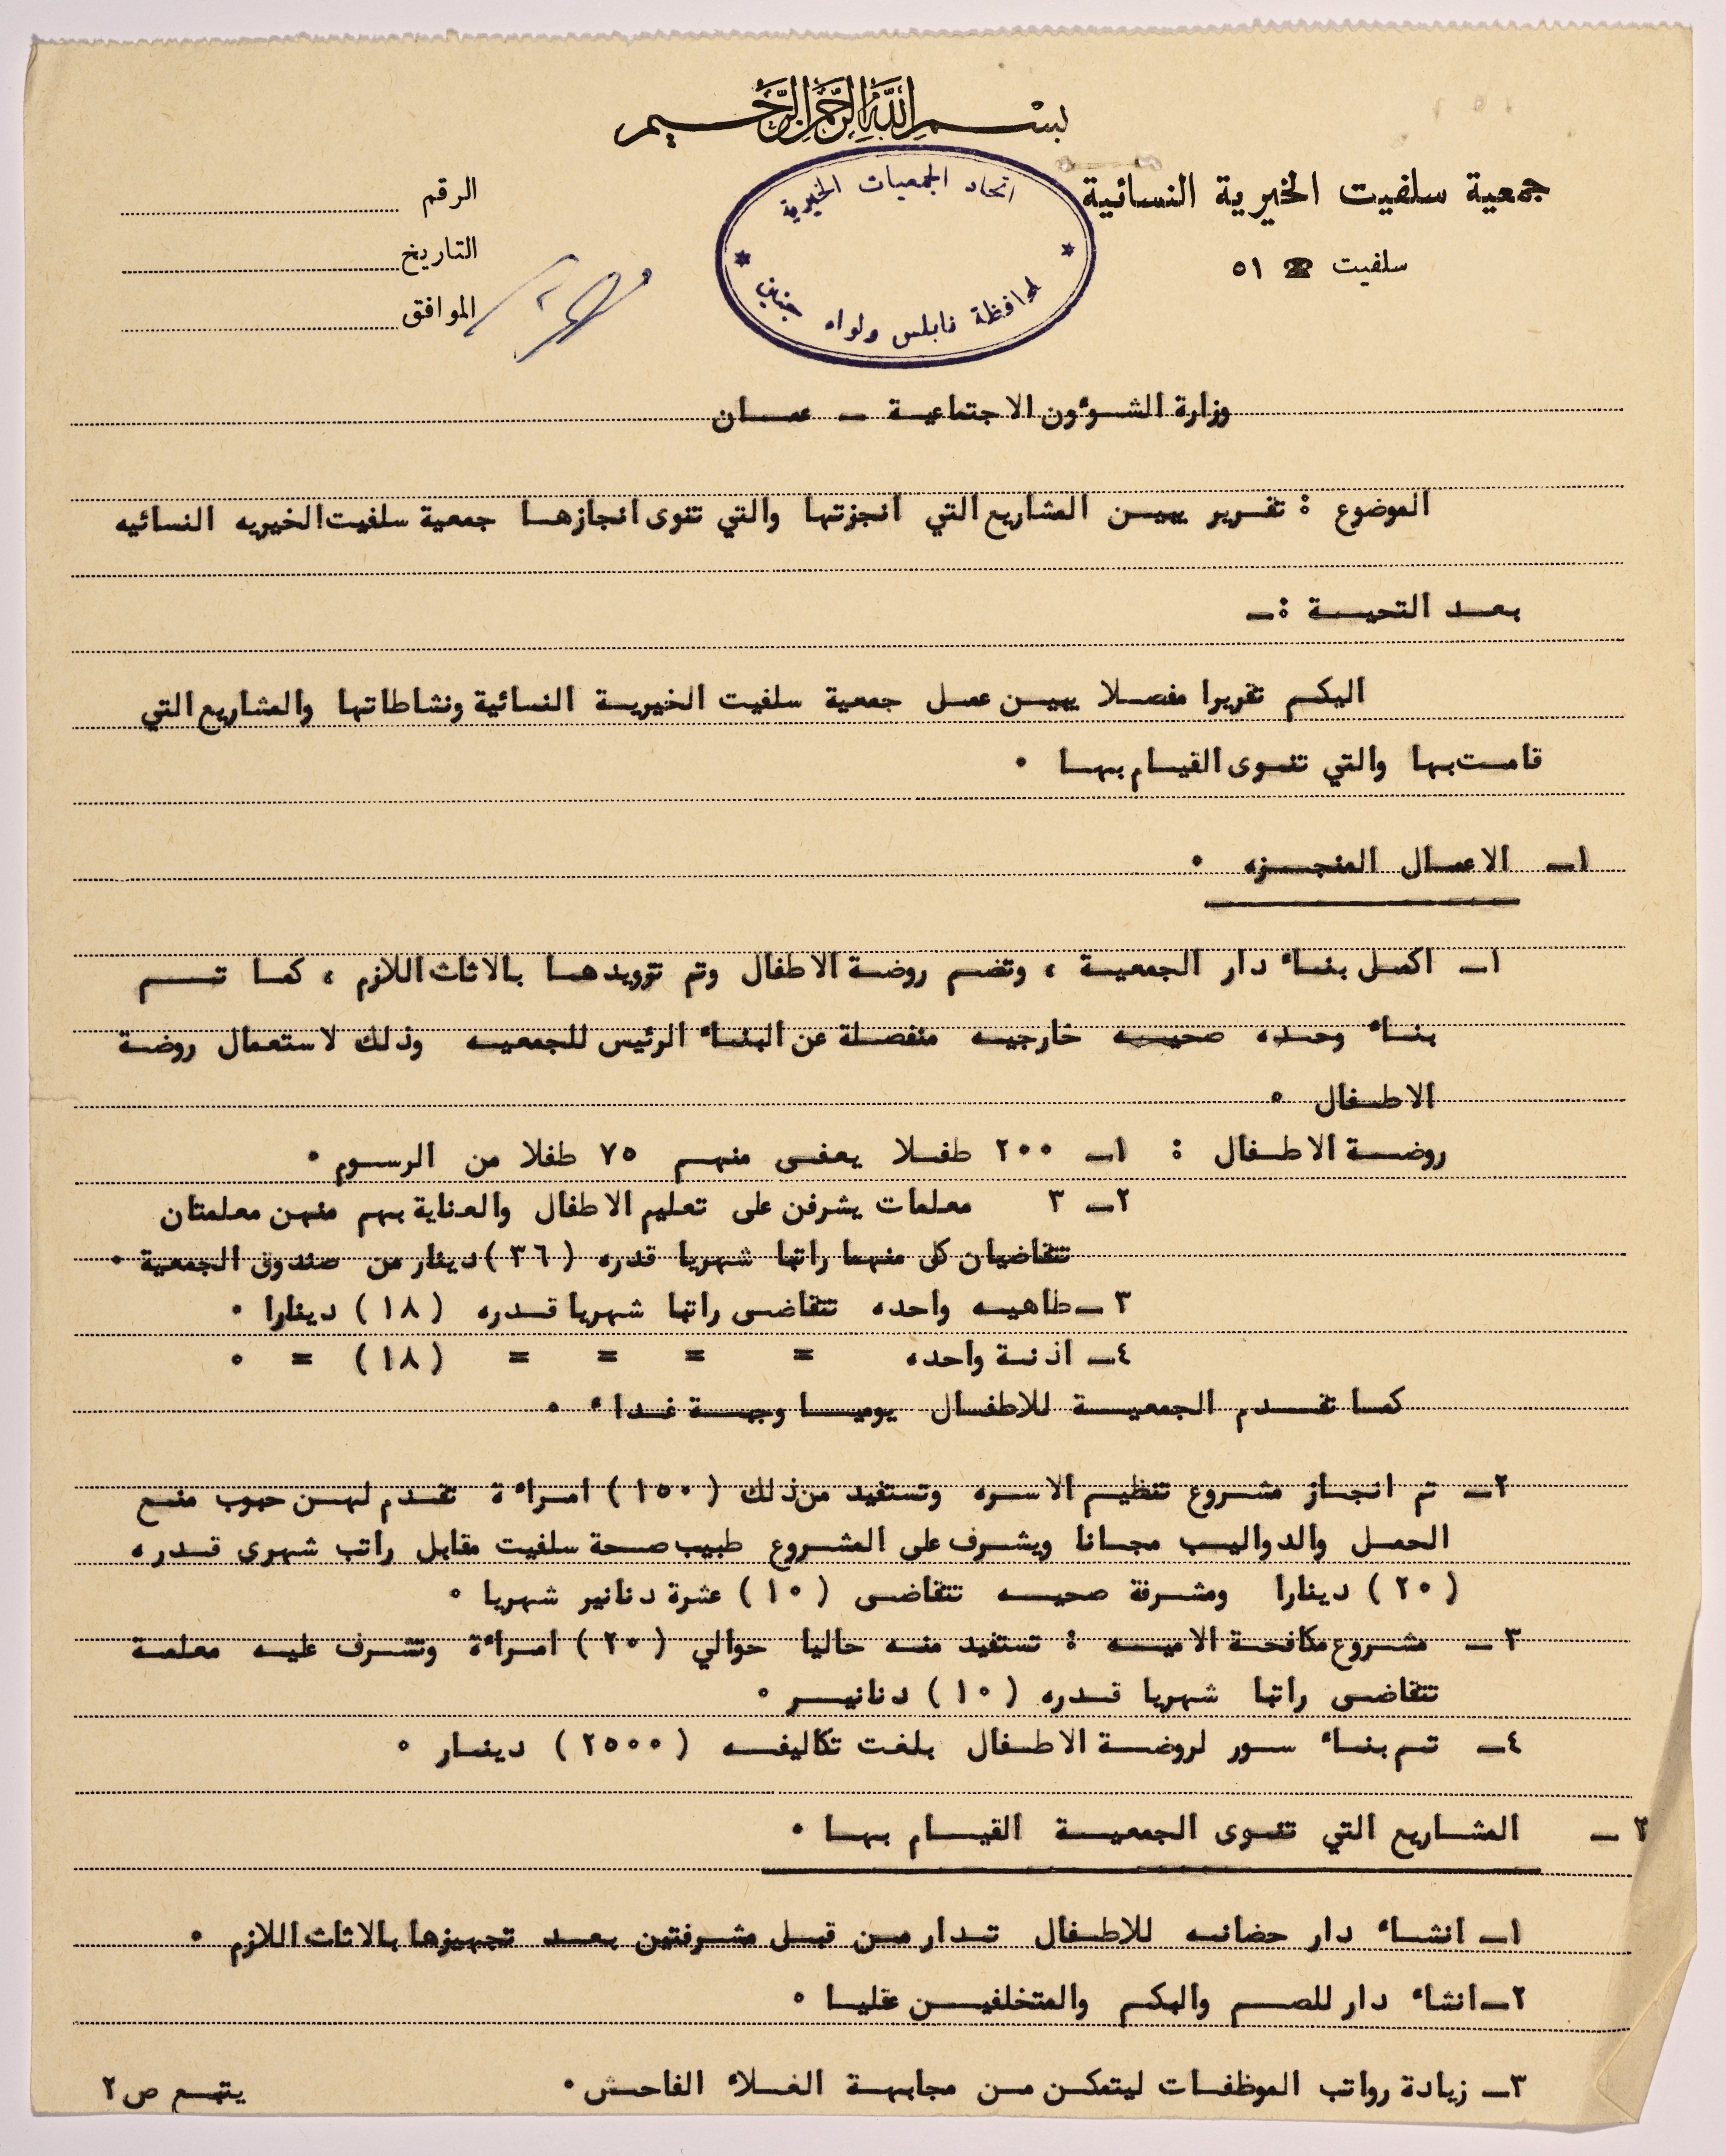 بسم الله الرحمن الرحيم
جمعية سلفيت الخيرية النسائية
سلفيت ☎ ٥١
اتحاد الجمعيات الخيرية
لمحافظة نابلس ولواء جنين
الرقم
التاريخ
الموافق
وزارة الشوءون الاجتماعية ــ عمان
الموضوع : تقرير يبين المشاريع التي انجزتها والتي تنوى انجازها جمعية سلفيت الخيريه النسائيه
بعد التحية :ــ
اليكم تقريرا مفصلا يبين عمل جمعية سلفيت الخيرية النسائية ونشاطاتها والمشاريع التي
قامت بها والتي تنوى القيام بها ٠
١ــ الاعمال المنجزه ٠
١ــ اكمل بناء دار الجمعية ، وتضم روضة الاطفال وتم تزويدها بالاثاث اللازم ، كما تم
بناء وحده صحيه خارجيه منفصلة عن البناء الرئيس للجمعيه وذلك لاستعمال روضة
الاطفال ٠
روضة الاطفال : ١ــ ٢٠٠ طفلا يعفى منهم ٧٥ طفلا من الرسوم ٠
٢ــ ٣ معلمات يشرفن على تعليم الاطفال والعناية بهم منهن معلمتان
تتقاضيان كل منهما راتبا شهريا قدره (٣٦) دينار من صندوق الجمعية ٠
٣ــ طاهيه واحده تتقاضى راتبا شهريا قدره (١٨) دينارا ٠
٤ــ اذنة واحده = = = = (١٨) = ٠
كما تقدم الجمعية للاطفال يوميا وجبة غداء ٠
٢ــ تم انجاز مشروع تنظيم الاسره وتستفيد من ذلك (١٥٠) امراءة تقدم لهن حبوب منع
الحمل والدواليب مجانا ويشرف على المشروع طبيب صحة سلفيت مقابل راتب شهرى قدره
(٢٠) دينارا ومشرفة صحيه تتقاضى (١٠) عشرة دنانير شهريا ٠
٣ ــ مشروع مكافحة الاميه : تستفيد منه حاليا حوالي (٢٠) امراءة وتشرف عليه معلمة
تتقاضى راتبا شهريا قدره (١٠) دنانير ٠
٤ــ تم بناء سور لروضة الاطفال بلغت تكاليفه (٢٥٠٠) دينار ٠
٢ ــ المشاريع التي تنوى الجمعية القيام بها ٠
١ــ انشاء دار حضانه للاطفال تدار من قبل مشرفتين بعد تجهيزها بالاثاث اللازم ٠
٢ــ انشاء دار للصم والبكم والمتخلفين عقليا ٠
٣ــ زيادة رواتب الموظفات ليتمكن من مجابهة الغلاء الفاحش ٠
يتبع ص ٢